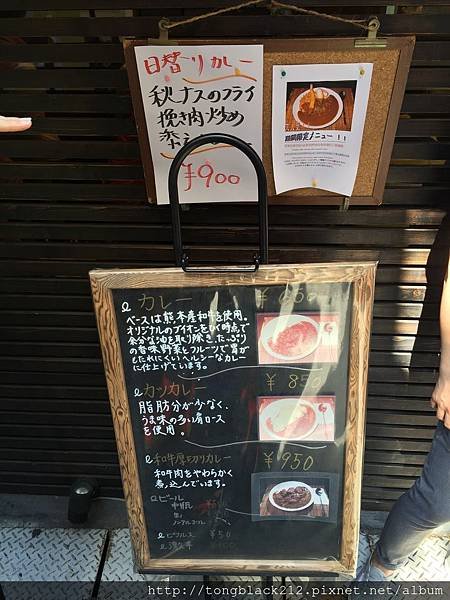 日替りカレー
秋ナスのフライ
挽き肉炒め
¥900
期間限定メニュー!!
カレー
ベースは熊本産和牛を使用。
オリジナルのブイヨンをひく時点で
余分な油を取り除き、たっぷり
の香味野菜とフルーツで胃が
もたれにくいヘルシーなカレー
に仕上げています。
カツカレー ¥850
脂肪分が少なく、
うま味の多い肩ロース
を使用。
和牛厚切りカレー ¥950
和牛肉をやわらかく
煮込んでいます。
ビール
中瓶
生
ノンアルコール
ピクルス ¥50
http://tongblack212.pixnet.net/album